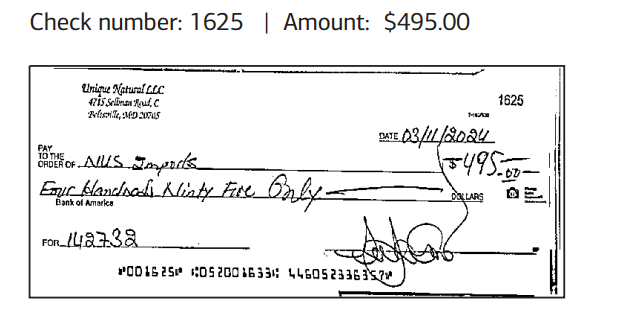 Check number: 1625 | Amount: $495.00
Unique Natural LLC
4715 Sellman Road, C
Beltsville, MD 20705
1625
DATE 03/11/2024
PAY
TO THE
ORDER OF NUS Imports
$495.00
Four Handrads Ninty Five Only
DOLLARS
Bank of America
FOR 142732
⑈001625⑈ ⑆052001633⑆ 446052336357⑈